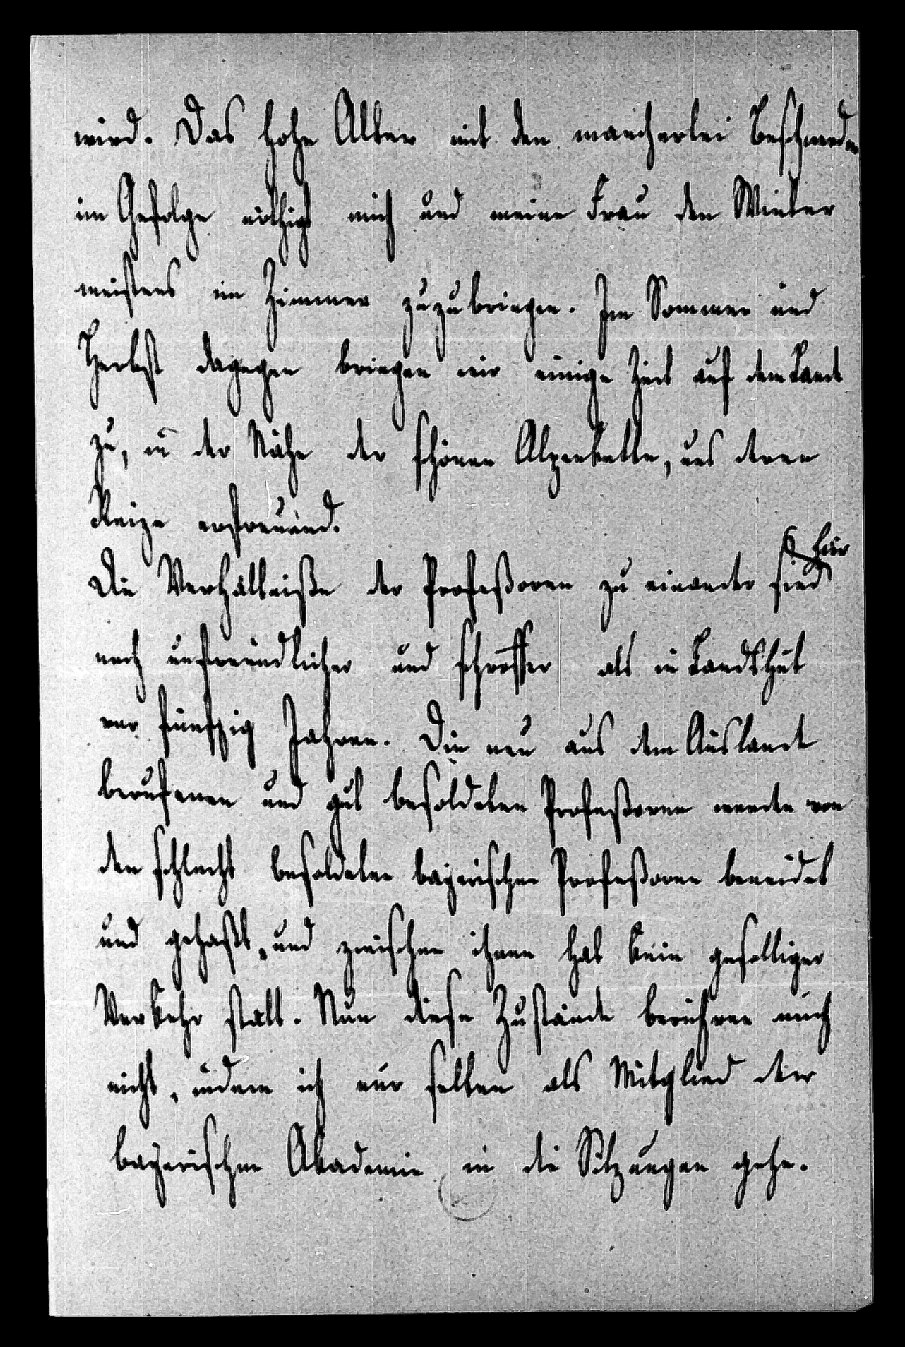 wird. Das hohe Alter mit den mancherlei Beschwerden
im Gefolge nöthigt mich und meine Frau den Winter
meistens im Zimmer zuzubringen. Im Sommer und
Herbst dagegen bringen wir einige Zeit auf dem Lande
zu, in der Nähe der schönen Alpenkette, uns deren
Reize erfreuend.
Die Verhältniße der Profeßoren zu einander sind hier
noch unfreundlicher und schroffer als in Landshut
vor fünfzig Jahren. Die neu aus dem Auslande
berufenen und gut besoldeten Profeßoren werden von
den schlecht besoldeten bayerischen Profeßoren beneidet
und gehaßt, und zwischen ihnen hat kein geselliger
Verkehr statt. Nun diese Zustände berühren mich
nicht, indem ich nur selten als Mitglied der
bayerischen Akademie in die Sitzungen gehe.